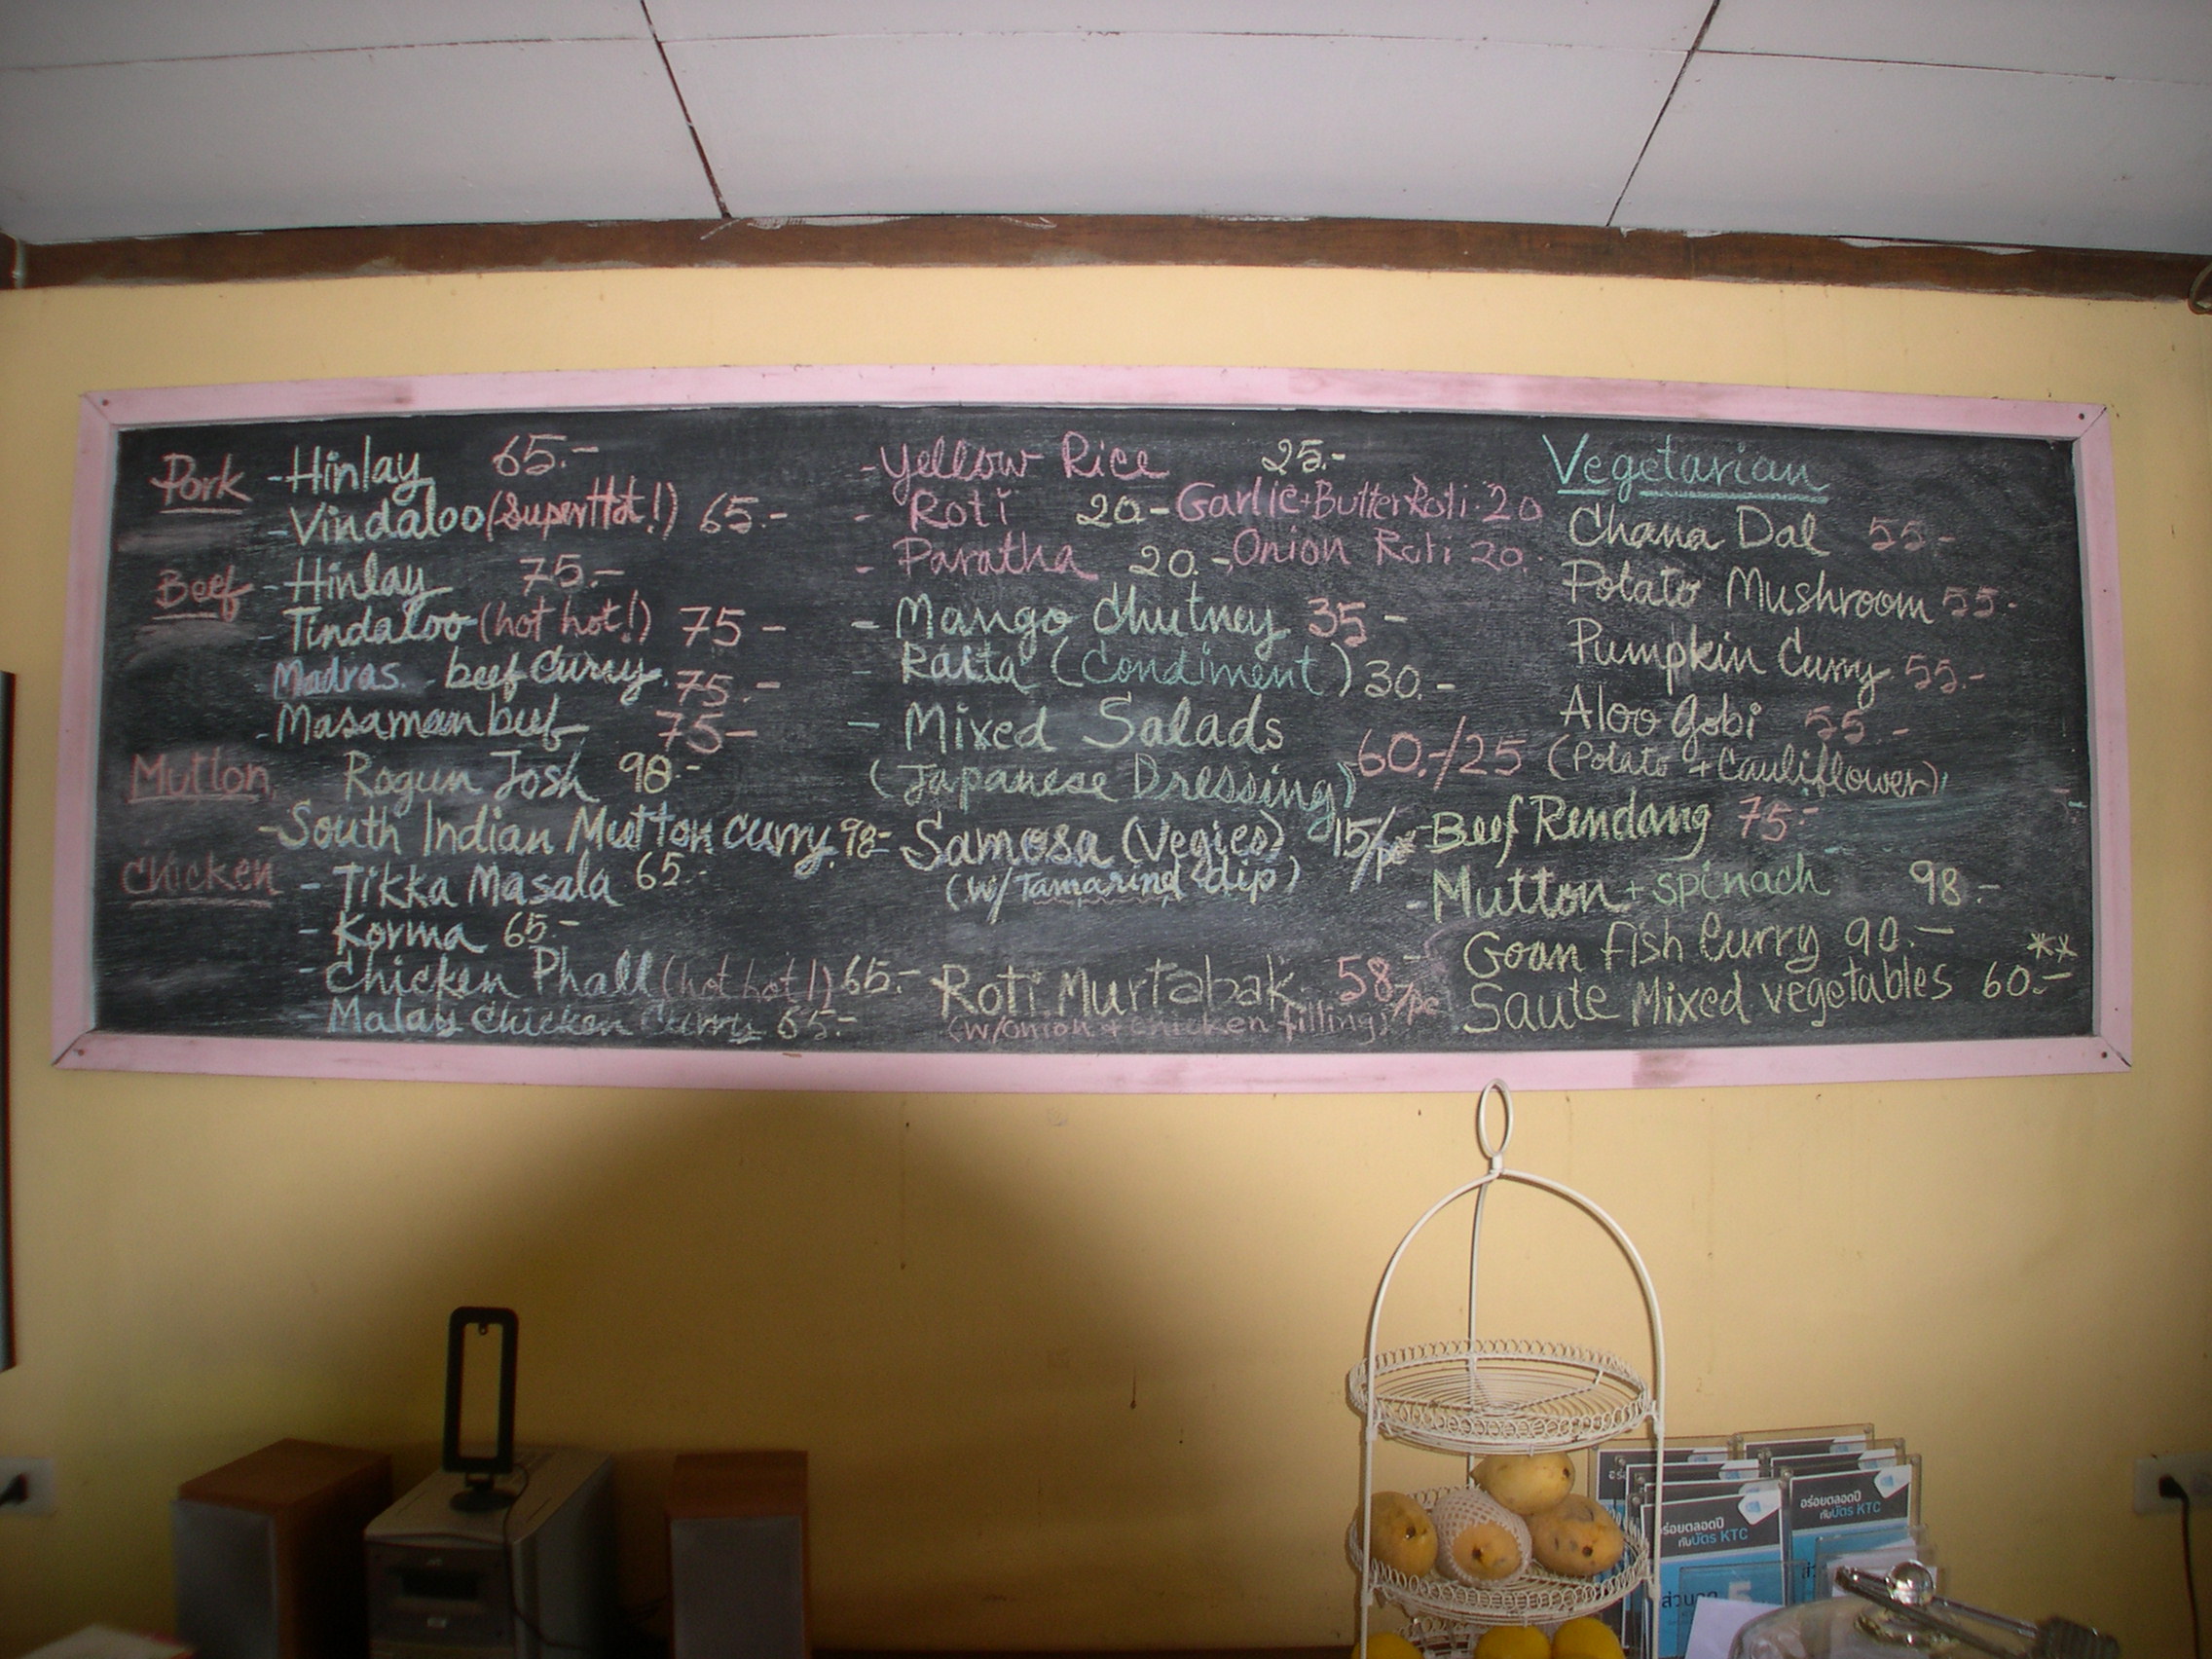 Pork -Hinlay 65.-
-Vindaloo (Super Hot!) 65.-
Beef -Hinlay 75.-
-Tindaloo (hot hot!) 75 -
Madras. beef Curry. 75.-
-Masaman beef 75-
Mutton. Rogun Josh 98.-
-South Indian Mutton curry. 98-
Chicken - Tikka Masala 65.-
- Korma 65.-
- Chicken Phall (hot hot!) 65.-
- Malay Chicken Curry 65.-
-Yellow Rice 25.-
- Roti 20.- Garlic+Butter Roti. 20
- Paratha 20.- Onion Roti 20.
- Mango Chutney 35 -
- Raita (Condiment) 30.-
- Mixed Salads
(Japanese Dressing) 60.-/25
Samosa (Vegies) 15/pc
(w/ Tamarind dip)
Roti Murtabak 58.-/pc
(w/onion + chicken filling)
Vegetarian
Chana Dal 55 -
Potato Mushroom 55.-
Pumpkin Curry. 55.-
Aloo Gobi 55.-
(Potato + Cauliflower)
-Beef Rendang 75.-
-Mutton + spinach 98.-
Goan fish Curry 90.-
Saute Mixed vegetables 60.- **
อร่อยตลอดปี
กับบัตร KTC
อร่อยตลอดปี
กับบัตร KTC